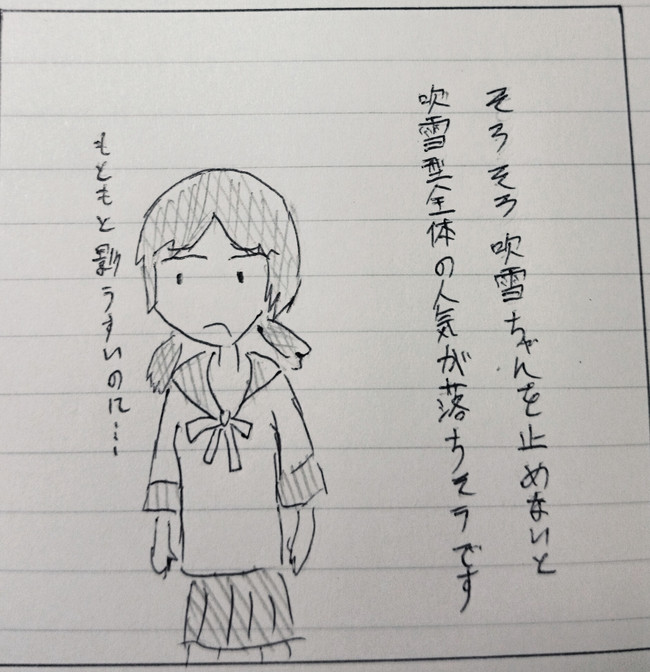 そろそろ吹雪ちゃんを止めないと
吹雪型全体の人気が落ちそうです
もともと影うすいのに…